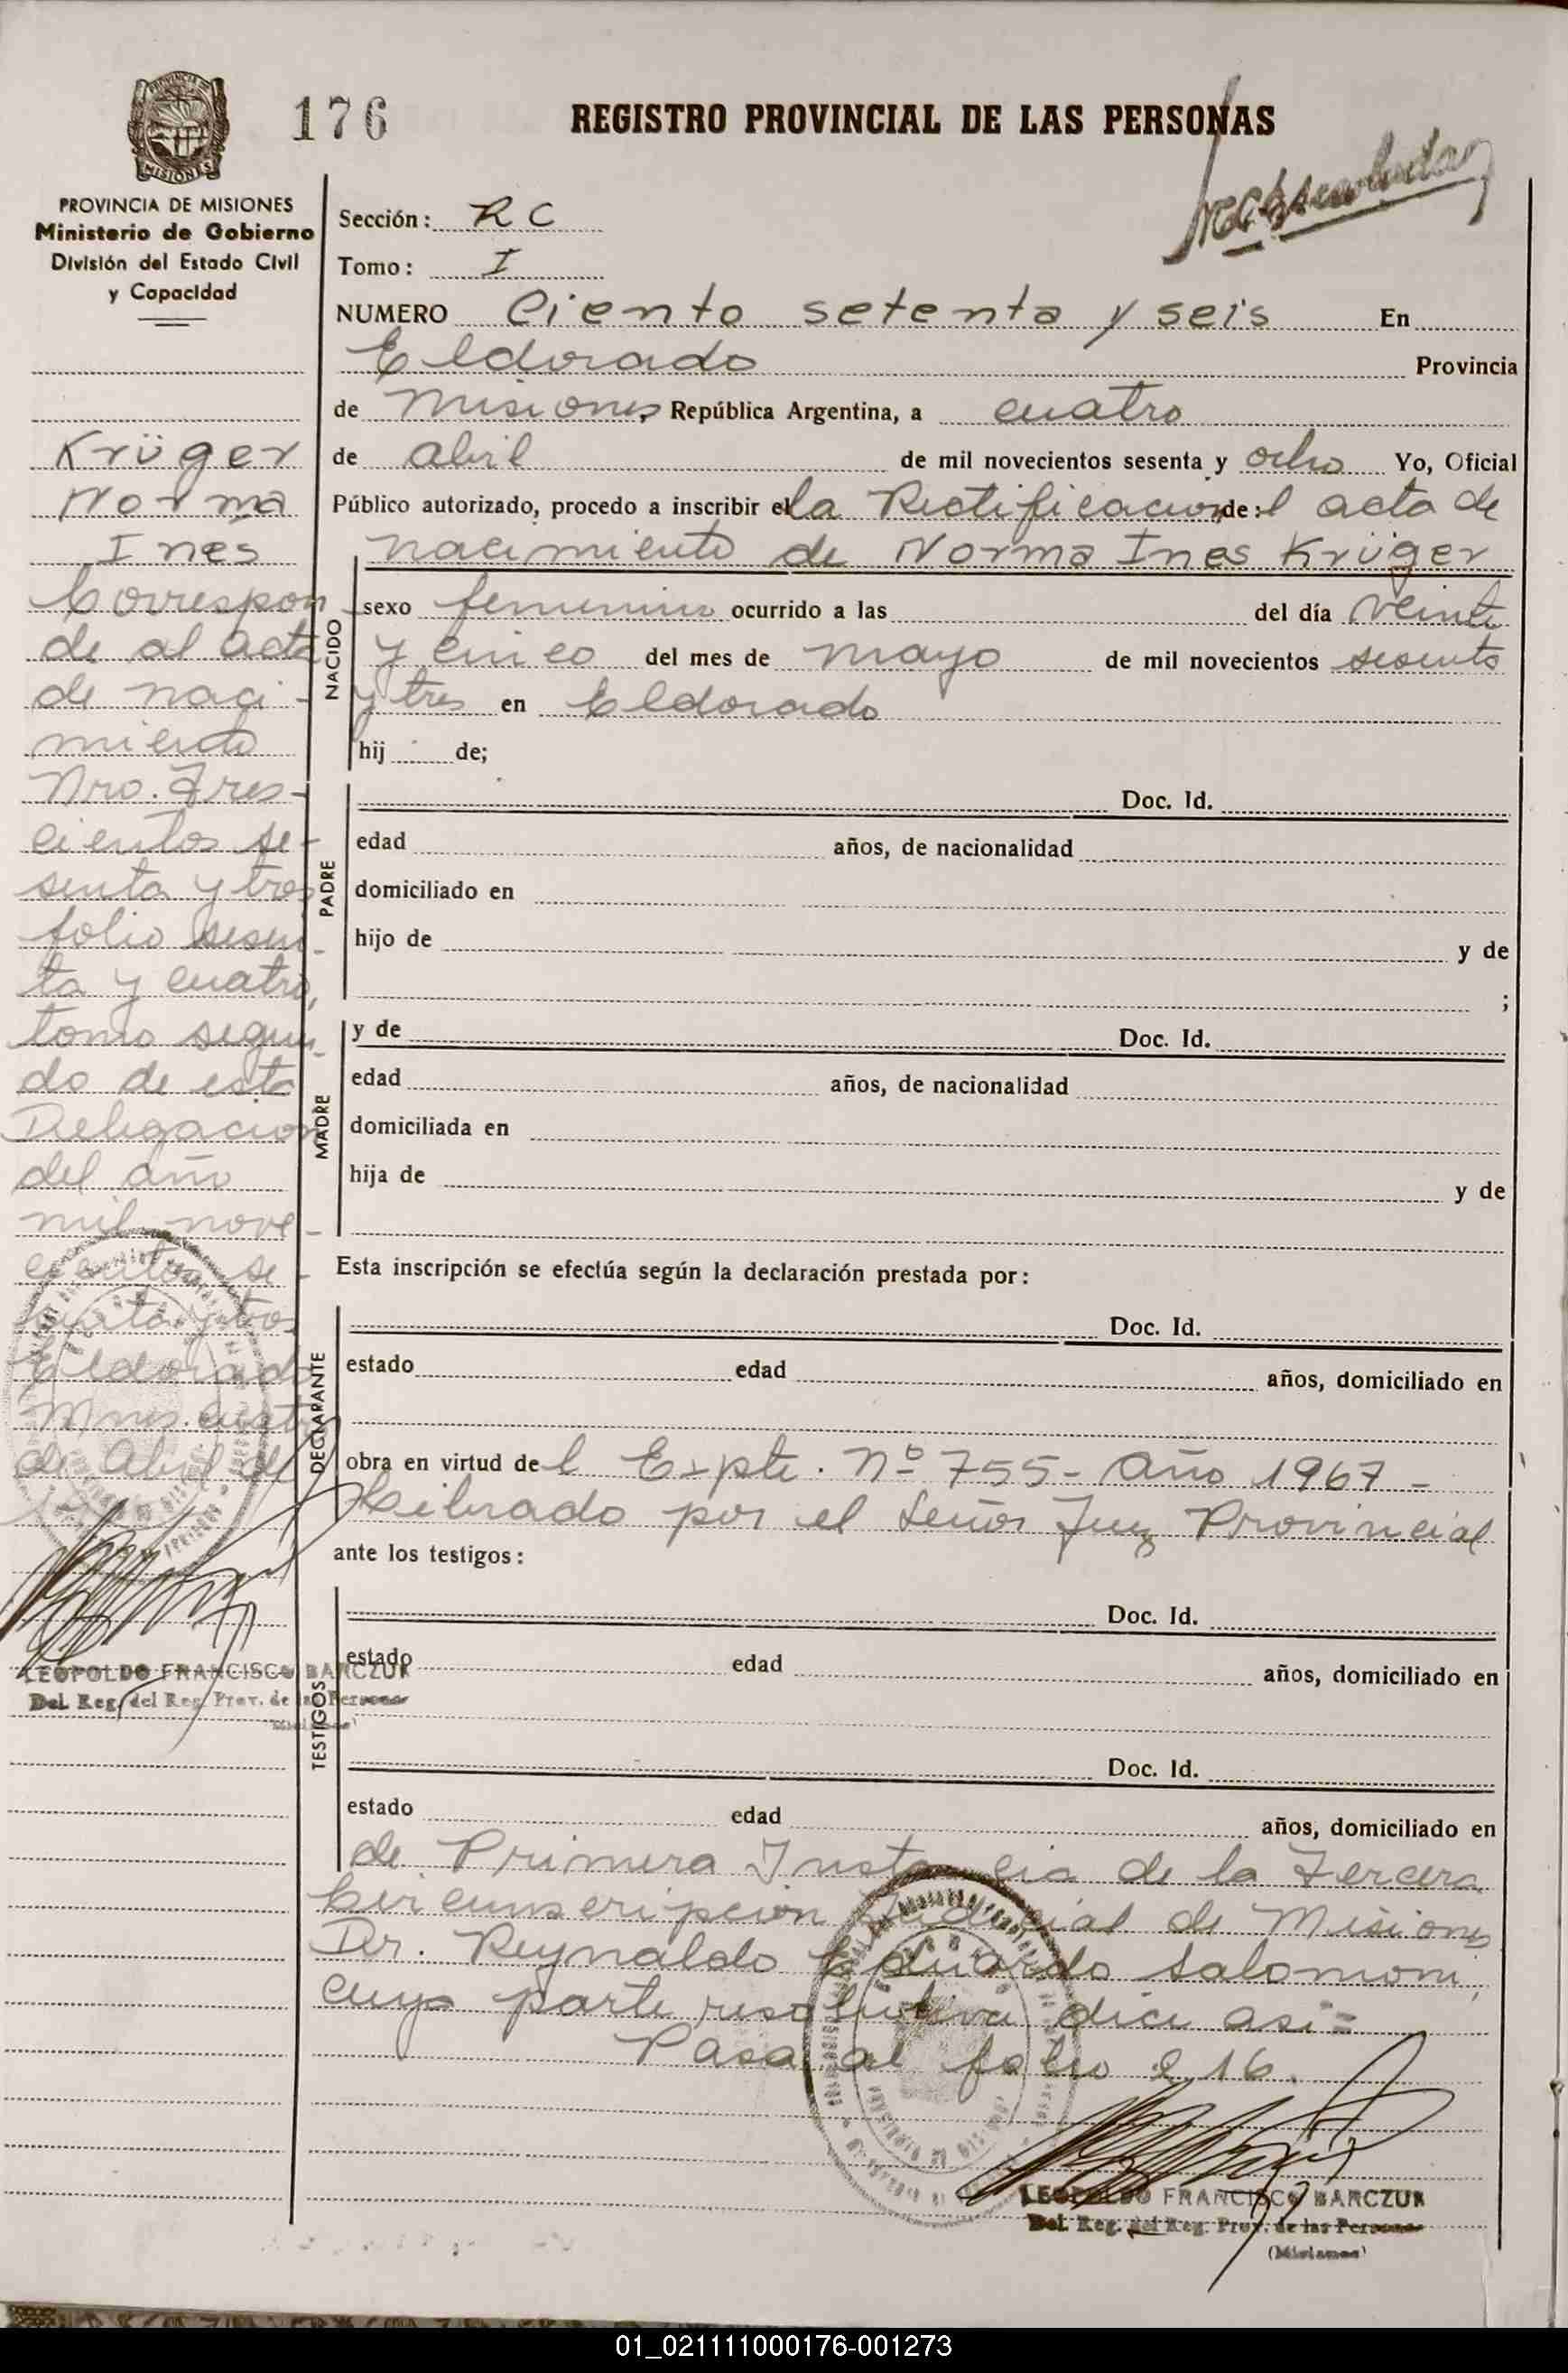 176
REGISTRO PROVINCIAL DE LAS PERSONAS
PROVINCIA DE
MISIONES
PROVINCIA DE MISIONES
Ministerio de Gobierno
División del Estado Civil
y Capacidad
Krüger
Norma
Ines
Correspon
de al acta
de naci-
miento
Nro. Tres-
cientos se-
senta y tres
folio sesen-
ta y cuatro,
tomo segun-
do de esta
Delegacion
del año
mil nove-
cientos se-
senta y tres
Eldorado
Mnes. cuatro
de Abril de
LEOPOLDO FRANCISCO BARCZUK
Del. Reg. del Reg. Prov. de las Personas
(Misiones)
Sección: RC
Tomo: I
NUMERO Ciento setenta y seis En
Eldorado Provincia
de Misiones República Argentina, a cuatro
de abril de mil novecientos sesenta y ocho Yo, Oficial
Público autorizado, procedo a inscribir el la Rectificacion de: l acta de
nacimiento de Norma Ines Krüger
NACIDO
sexo femenino ocurrido a las del día veinti
y cinco del mes de mayo de mil novecientos sesenta
y tres en Eldorado
hij de;
PADRE
Doc. Id.
edad años, de nacionalidad
domiciliado en
hijo de y de
;
MADRE
y de Doc. Id.
edad años, de nacionalidad
domiciliada en
hija de y de
Esta inscripción se efectúa según la declaración prestada por:
DECLARANTE
Doc. Id.
estado edad años, domiciliado en
obra en virtud de l Expte. Nº 755- Año 1967-
Librado por el Señor Juez Provincial
ante los testigos:
TESTIGOS
Doc. Id.
estado edad años, domiciliado en
Doc. Id.
estado edad años, domiciliado en
de Primera Instancia de la Tercera
Circunscripcion Judicial de Misiones
Dr. Reynaldo Eduardo Salomoni,
cuya parte resolutiva dice asi=
Pasa al folio 216.
LEOPOLDO FRANCISCO BARCZUK
Del. Reg. del Reg. Prov. de las Personas
(Misiones)
01_021111000176-001273